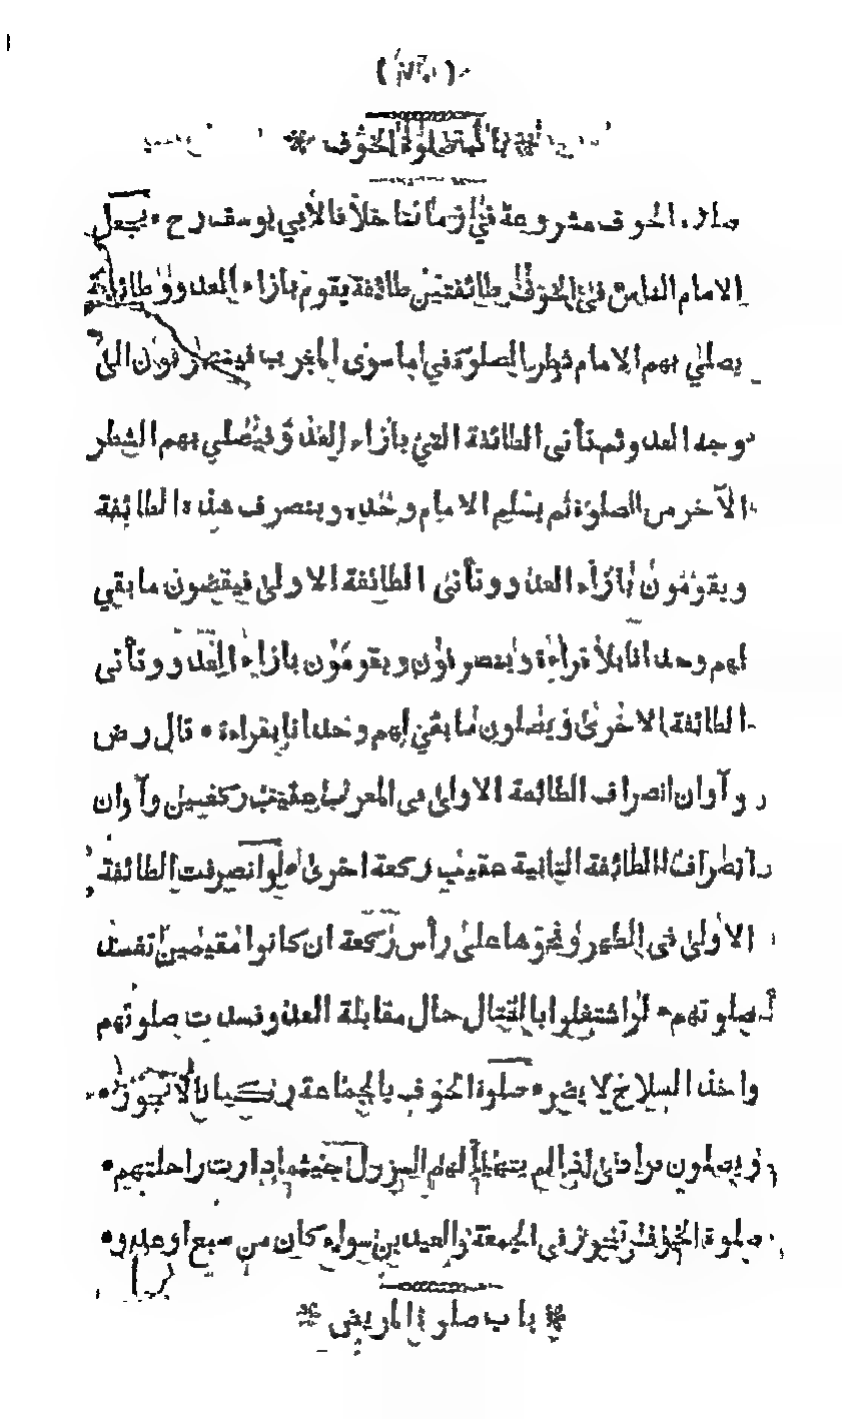 باب صلوة الخوف
صلوة الخوف مشروعة في زماننا خلافا لأبي يوسف رح • يجعل
الامام الناس في الخوف طائفتين طائفة يقوم بازاء العدو وطائفة
يصلي بهم الامام شطر الصلوة في ما سوى المغرب فينصرفون الى
وجه العدو ثم تأتى الطائفة التي بازاء العدو فيصلي بهم الشطر
الآخر من الصلوة ثم يسلم الامام وحده وينصرف هذه الطائفة
ويقومون بازاء العدو وتأتى الطائفة الاولى فيقضون ما بقي
لهم وحدانا بلا قراءة وينصرفون ويقومون بازاء العدو وتأتى
الطائفة الاخرى ويصلون ما بقي لهم وحدانا بقراءة • قال رض
وآوان انصراف الطائفة الاولى في المغرب عقيب ركعتين وآوان
انصراف الطائفة الثانية عقيب ركعة اخرى • لو انصرفت الطائفة
الاولى في الظهر ونحوها على رأس ركعة ان كانوا مقيمين تفسد
صلوتهم • لو اشتغلوا بالقتال حال مقابلة العدو فسدت صلوتهم
واخذ السلاح لا يضر • صلوة الخوف بالجماعة ركبانا لا يجوز •
ويصلون فرادى اذا لم يتهيأ لهم النزول حيثما دارت راحلتهم •
صلوة الخوف تجوز في الجمعة والعيدين سواء كان من سبع او عدو •
باب صلوة المريض